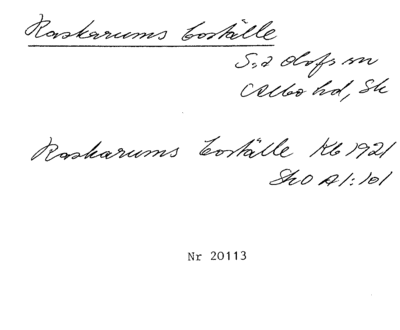 Raskarums boställe
S:a Olofs sn
Albo hd, Sk
Raskarums boställe Kb 1921
SkO A1:101
Nr 20113